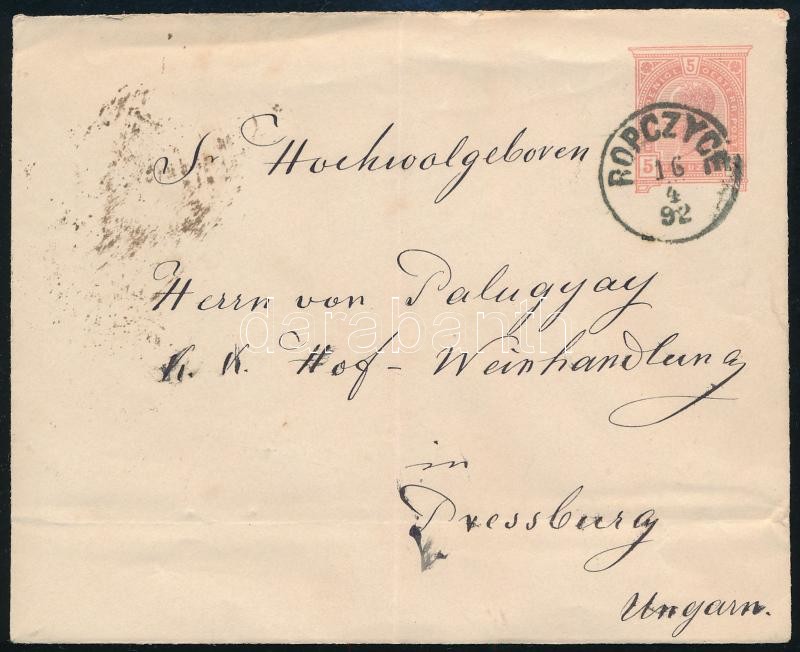 5
KAISERL. KÖNIGL. OESTERR. POST
5
ROPCZYCE
16
4
92
S. Hochwolgeboren
Herrn von Palugyay
K. K. Hof-Weinhandlung
in
Pressburg
Ungarn.
darabanth